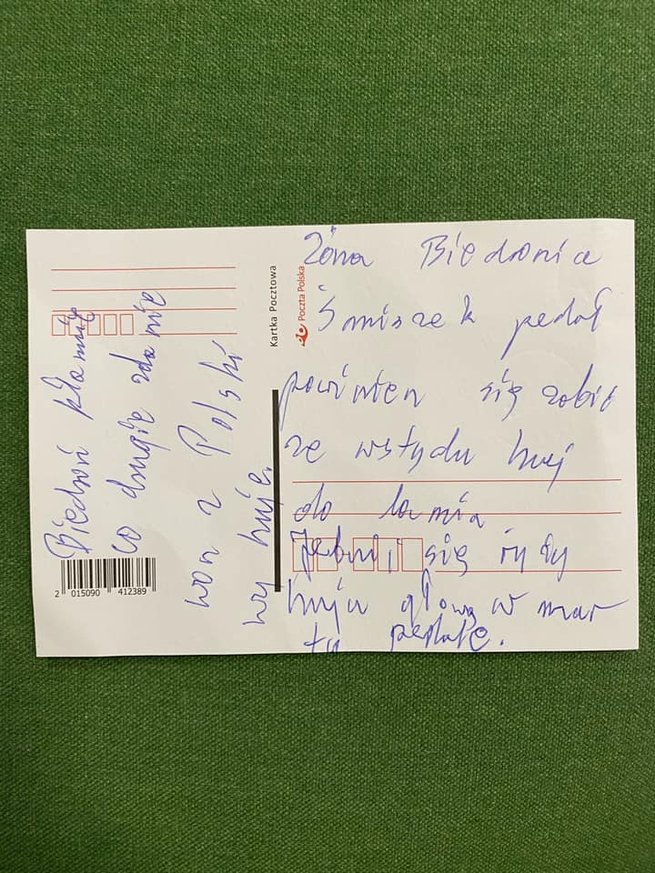 Żona Biedronia
Śmiszek pedał
powinien się zabić
ze wstydu huj
do łamia
Jebnij się ryży
huju głową w mur
ty pedale.
Biedroń kłamię
co drugie zdanie
won z Polski
wy huje.
Kartka Pocztowa
Poczta Polska
2 015090 412389